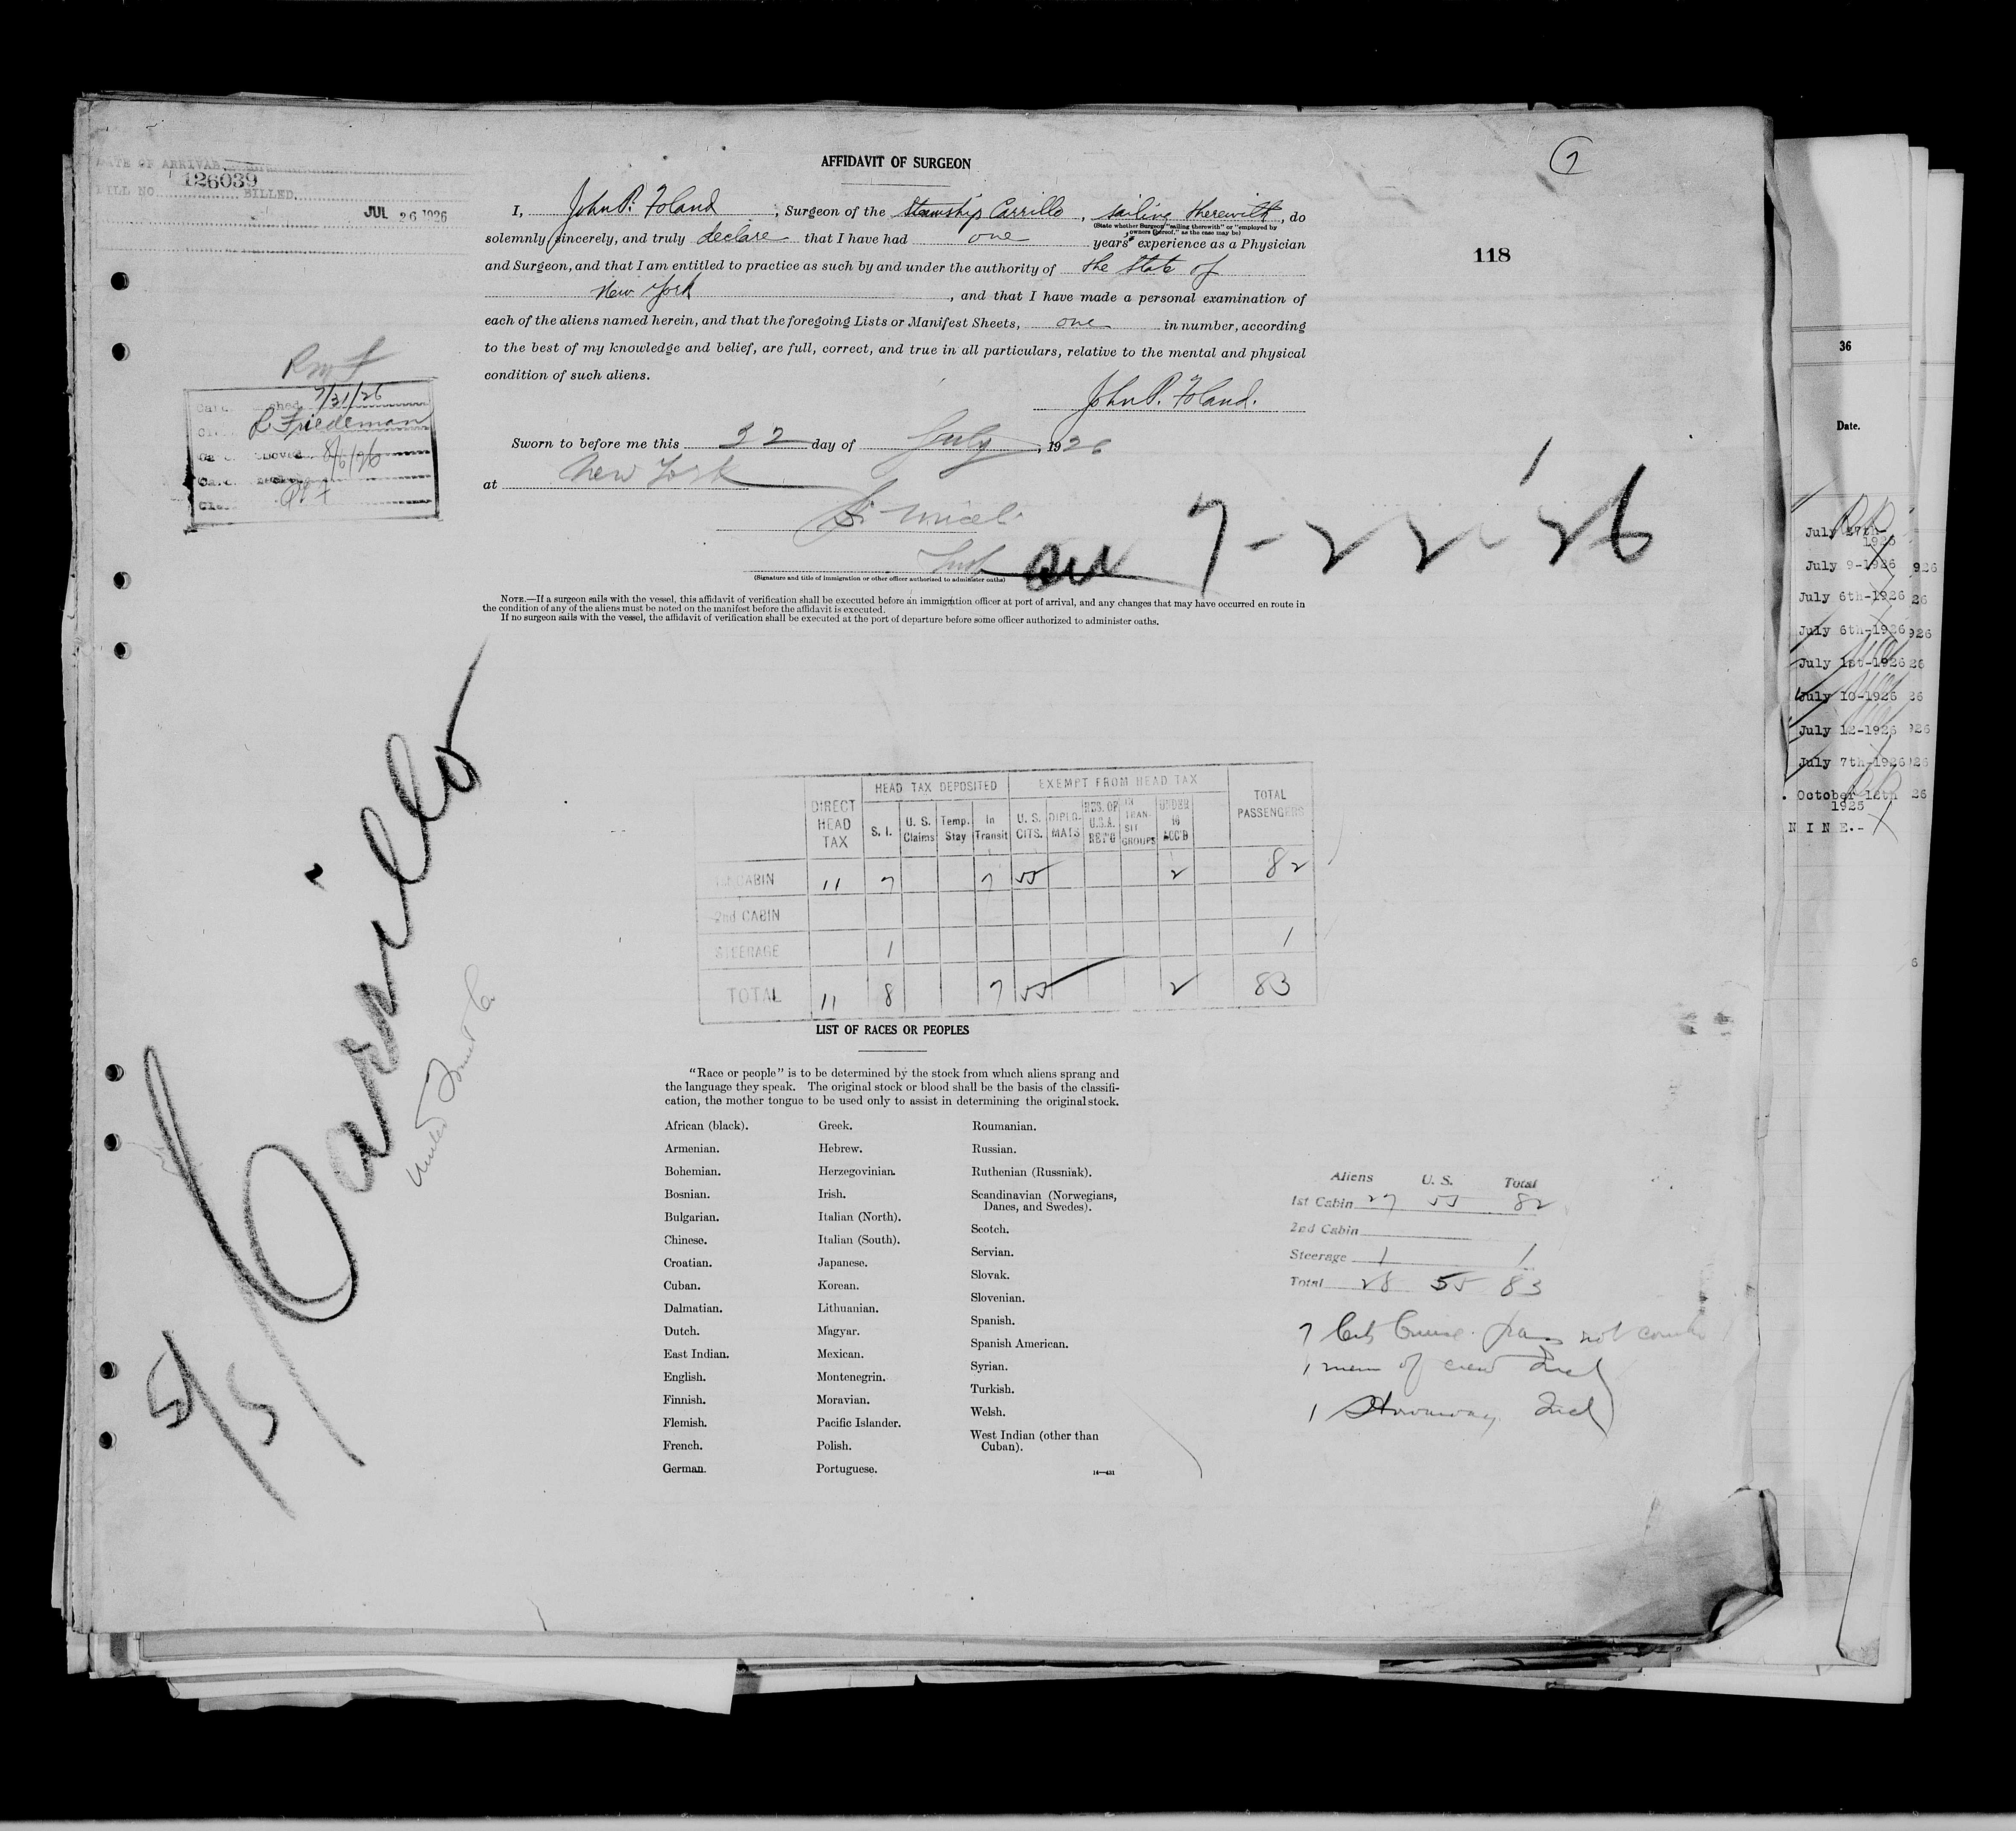 AFFIDAVIT OF SURGEON
7
DATE OF ARRIVAL
126039
BILL NO. BILLED
JUL 26 1926
I, John P. Foland, Surgeon of the Steamship Carrillo, sailing therewith, do
(State whether Surgeon "sailing therewith" or "employed by
owners thereof," as the case may be)
solemnly, sincerely, and truly declare that I have had one years' experience as a Physician
and Surgeon, and that I am entitled to practice as such by and under the authority of the State of
New York, and that I have made a personal examination of
each of the aliens named herein, and that the foregoing Lists or Manifest Sheets, one in number, according
to the best of my knowledge and belief, are full, correct, and true in all particulars, relative to the mental and physical
condition of such aliens.
118
John P. Foland.
7/31/26
R Friedeman
8/6/26
Sworn to before me this 22 day of July, 1926
at New York
7-22-26
(Signature and title of immigration or other officer authorized to administer oaths)
NOTE.—If a surgeon sails with the vessel, this affidavit of verification shall be executed before an immigration officer at port of arrival, and any changes that may have occurred en route in
the condition of any of the aliens must be noted on the manifest before the affidavit is executed.
If no surgeon sails with the vessel, the affidavit of verification shall be executed at the port of departure before some officer authorized to administer oaths.
Carrillo
United Fruit Co
5/5
DIRECT HEAD TAX
HEAD TAX DEPOSITED
EXEMPT FROM HEAD TAX
TOTAL PASSENGERS
S. I. U. S. Claims Temp. Stay In Transit U. S. CITS. DIPLO-MATS RES. OF U.S.A. RET'G IN TRAN-SIT GROUPS UNDER 16 ACC'D
1st CABIN 11 7 7 55 2 82
2nd CABIN
STEERAGE 1 1
TOTAL 11 8 7 55 2 83
LIST OF RACES OR PEOPLES
"Race or people" is to be determined by the stock from which aliens sprang and
the language they speak. The original stock or blood shall be the basis of the classifi-
cation, the mother tongue to be used only to assist in determining the original stock.
African (black).
Armenian.
Bohemian.
Bosnian.
Bulgarian.
Chinese.
Croatian.
Cuban.
Dalmatian.
Dutch.
East Indian.
English.
Finnish.
Flemish.
French.
German.
Greek.
Hebrew.
Herzegovinian.
Irish.
Italian (North).
Italian (South).
Japanese.
Korean.
Lithuanian.
Magyar.
Mexican.
Montenegrin.
Moravian.
Pacific Islander.
Polish.
Portuguese.
Roumanian.
Russian.
Ruthenian (Russniak).
Scandinavian (Norwegians,
Danes, and Swedes).
Scotch.
Servian.
Slovak.
Slovenian.
Spanish.
Spanish American.
Syrian.
Turkish.
Welsh.
West Indian (other than
Cuban).
14—431
Aliens U. S. Total
1st Cabin 27 55 82
2nd Cabin
Steerage 1 1
Total 28 55 83
7 Cruise pass not
1 mem of crew Incl
1 Stowaway Incl
36
Date.
July 27th-
1926
July 9-1926
July 6th-1926
July 6th-1926
July 1st-1926
July 10-1926
July 12-1926
July 7th-1926
October 12th
1925
N I N E.-